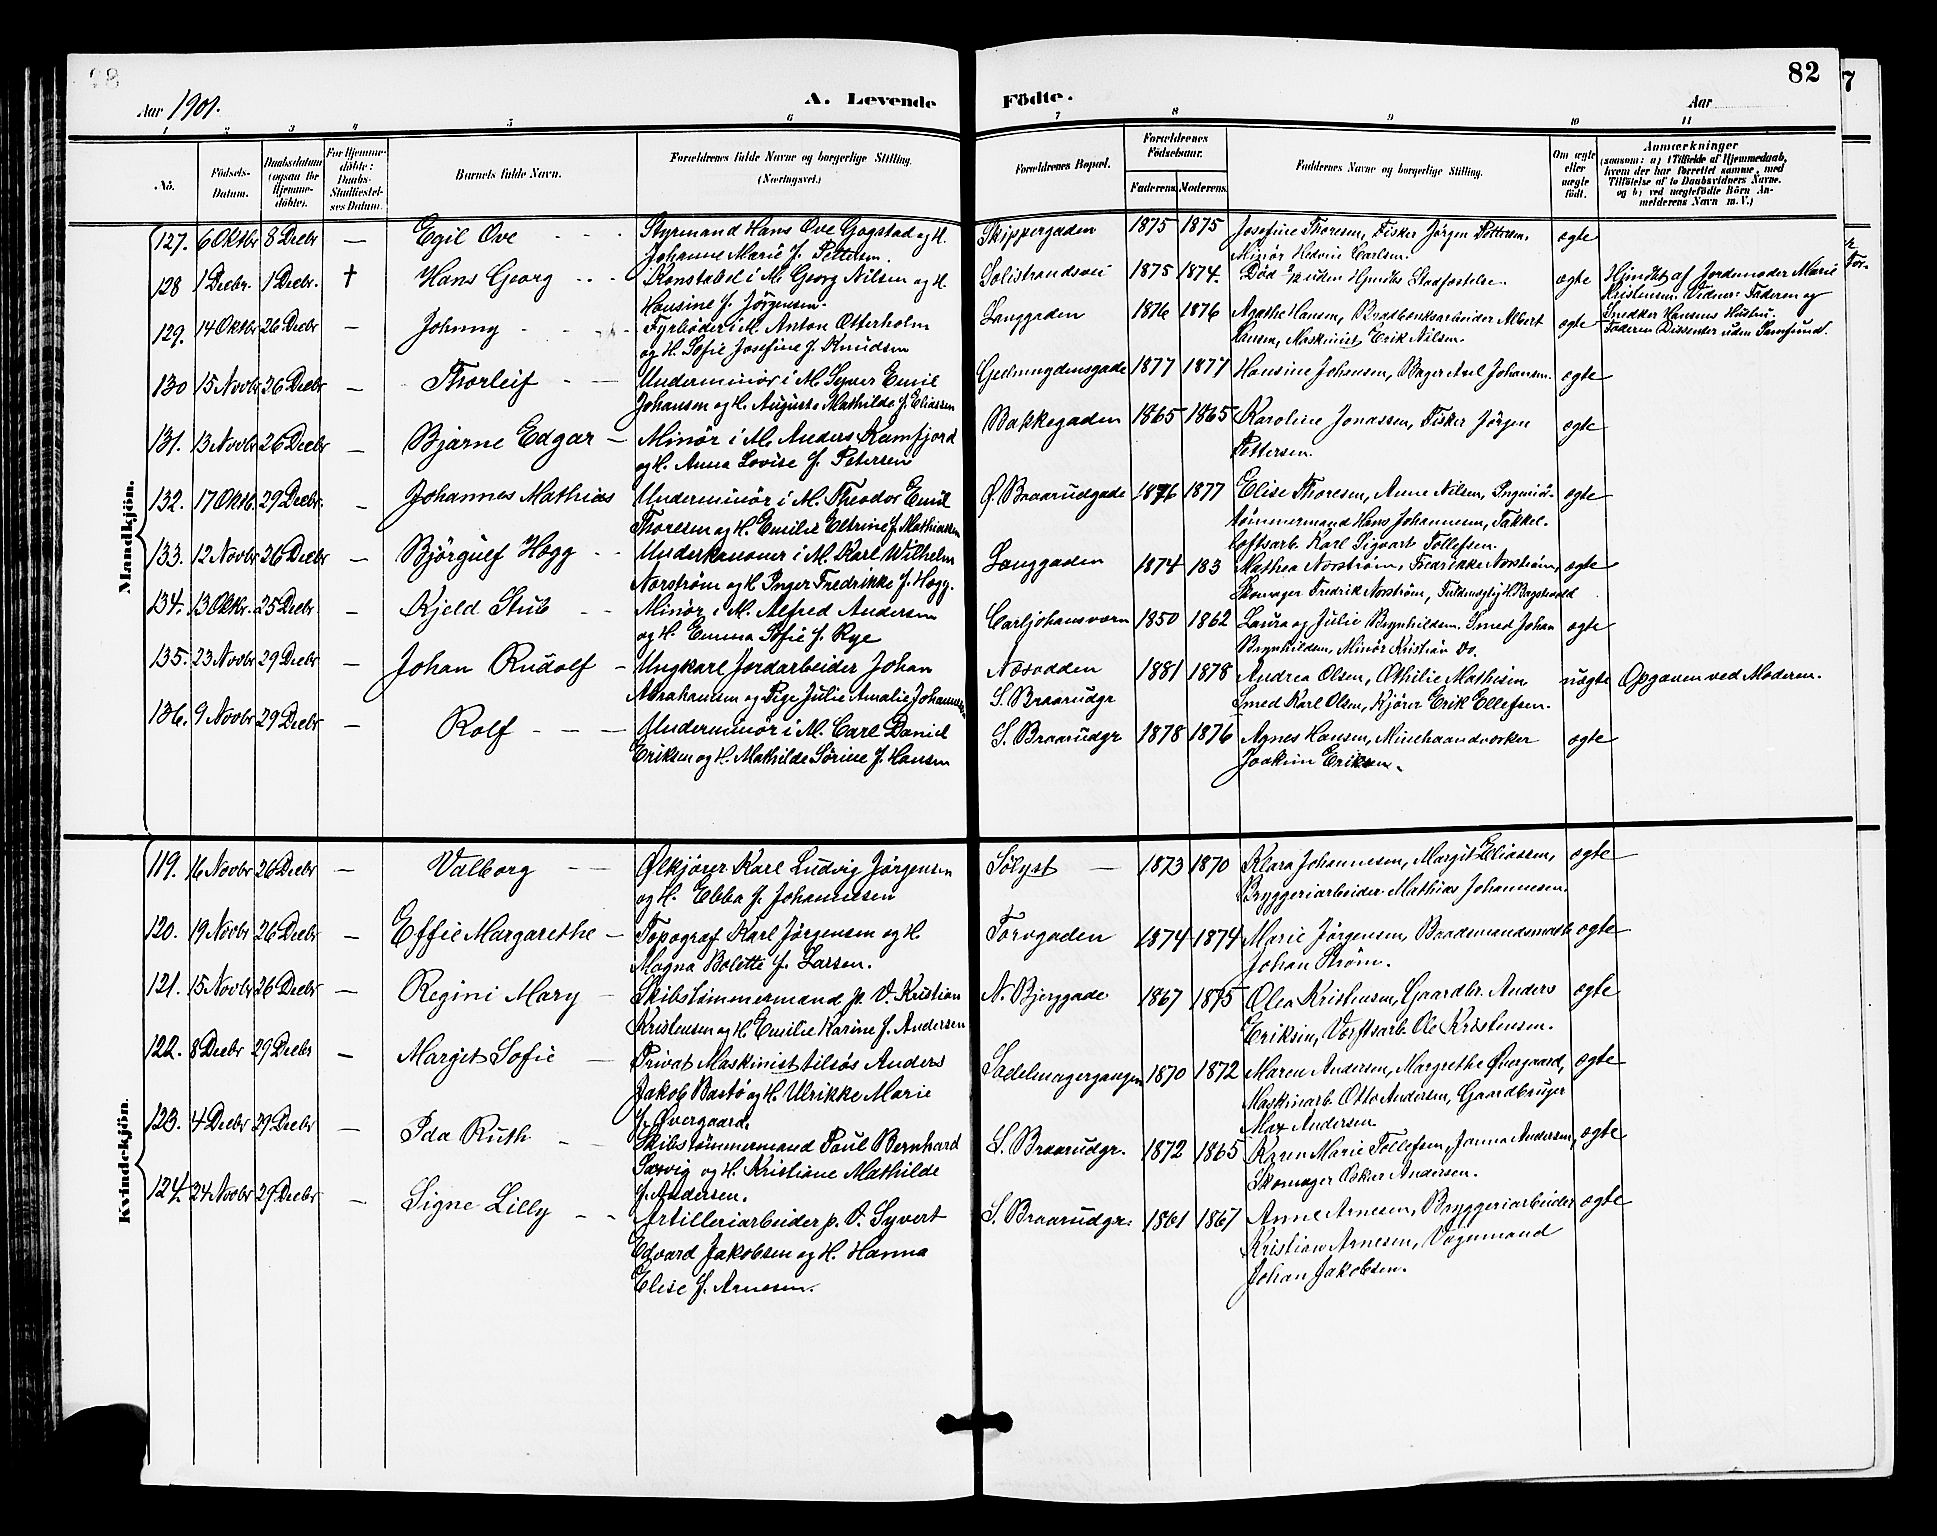 82
Aar 1901.
A. Levende Födte.
Aar
1 2 3 4 5 6 7 8 9 10 11
No. Födsels-Datum. Daabsdatum (ogsaa for Hjemmedöbte). For Hjemmedöbte: Daabs-Stadfæstelses Datum. Barnets fulde Navn. Forældrenes fulde Navne og borgerlige Stilling. (Næringsvei.) Forældrenes Bopæl. Forældrenes Födselsaar. Faderens. Moderens. Faddernes Navne og borgerlige Stilling. Om ægte eller uægte født. Anmærkninger (saasom: a) i Tilfælde af Hjemmedaab, hvem der har forrettet samme, med Tilföielse af to Daabsvidners Navne, og b) ved uægtefödte Börn Anmelderens Navn m. V.)
Mandkjön.
127. 6 Oktbr 8 Decbr — Egil Ove - - - Styrmand Hans Ove Gogstad og H. Skippergaden 1875 1875 Josefine Thoresen, Fisker Jörgen Pettersen, ægte
Johanne Marie f. Pettersen. Minör Hedvin Carlsen.
128 1 Decbr. 1 Decbr. † Hans Georg - - Konstabel i M. Georg Nilsen og H. Solistrandsvei 1875 1874. Död 2/12 uden Hjmdbs Stadfæstelse. ægte Hjmdbt af Jordemoder Marie
Hansine f. Jörgensen. Kristensen. Vidner: Faderen og
129. 14 Oktbr 26 Decbr — Johnny - - - - Fyrböder i M. Anton Otterholm Langgaden 1876 1876 Agathe Hansen, Albert ægte Snedker Hansens Hustru.
og H. Sofie Josefine f. Knudsen Hansen, Maskinist Erik Nilsen. Faderen Dissenter uden Samfund.
130 15 Novbr 26 Decbr — Thorleif - — Underminör i M. Syver Emil 1877 1877 Hansine Johansen, Bager Axel Johansen. ægte
Johansen og H. Augusta Mathilde f. Eliassen
131. 13 Novbr 26 Decbr — Bjarne Edgar — Minör i M. Anders Ramfjord Bakkegaden 1865 1865 Karoline Jonassen, Fisker Jörgen ægte
og H. Anna Lovise f. Petersen Pettersen.
132. 17 Oktb. 29 Decbr. — Johannes Mathias Underminör i M. Theodor Emil Ö. Braarudgade 1876 1877 Elise Thoresen, Anne Nilsen, ægte
Thoresen og H. Emilie Eltrine f. Mathiassen tömmermand Hans Johannesen, Takkel-
133. 12 Novbr 26 Decbr — Björgulf Hogg - - Underkanoner i M. Karl Wilhelm Langgaden 1874 183 loftsarb. Karl Sigvart Tollefsen. ægte
Norström og H. Inger Fredrikke f. Hogg. Mathea Norström, Fredrikke Norström,
134. 13 Oktbr. 25 Decbr — Kjeld Stub - - Minör i M. Alfred Andersen Carljohansværn 1850 1862 Skomager Fredrik Norström, Fuldmægtig H. ægte
og H. Emma Sofie f. Rye Laura og Julie Brynhildsen. Smed Johan
Brynhildsen, Minör Kristian Do.
135. 23 Novbr 29 Decbr — Johan Rudolf — Ungkarl Jordarbeider Johan Næsodden 1881 1878 Andrea Olsen, Othilie Mathisen uægte Opgaven ved Moderen.
Abrahamsen og Pige Julie Amalie S. Braarudgr Smed Karl Olsen, Kjörer Erik Ellefsen.
136. 9 Novbr 29 Decbr — Rolf - — — Underminör i M. Carl Daniel S. Braarudgr 1878 1876 Agnes Hansen, Minehaandværker ægte
Eriksen og H. Mathilde Sörine f. Hansen Joakim Eriksen.
Kvindekjön.
119. 16 Novbr 26 Decbr — Valborg — — Ölkjörer Karl Ludvig Jörgensen Sölyst — 1873 1870 Klara Johannesen, Margit Eliassen, ægte
og H. Ebba f. Johannesen Bryggeriarbeider Mathias Johannesen.
120. 19 Novbr 26 Decbr — Effie Margarethe — Topograf Karl Jörgensen og H. Torvgaden 1874 1874 Marie Jörgensen, Baadsmandsmath ægte
Magna Bolette f. Larsen. Johan Ström.
121. 15 Novbr 26 Decbr — Regini Mary — Skibstömmermand p. V. Kristian N. Bjerggade 1867 1875 Olea Kristensen, Gaardbr. Anders ægte
Kristensen og H. Emilie Karine f. Andersen Eriksen, Verftsarb. Ole Kristensen.
122. 8 Decbr 29 Decbr — Margit Sofie — Privat Maskinist tilsös Anders Sadelmagergangen 1870 1872 Maren Andersen, Margrethe Övergaard, ægte
Jakob Bastö og H. Ulrikke Marie Maskinarb. Otto Andersen, Gaardbruger
f. Övergaard. Max Andersen
123. 4 Decbr 29 Decbr — Ida Ruth - — Skibstömmermand Paul Bernhard S. Braarudgr. 1872 1865 Karen Marie Tollefsen, Janna Andersen, ægte
Sørvig og H. Kristiane Mathilde Skomager Oskar Andersen.
f. Andersen.
124. 24 Novbr 29 Decbr — Signe Lilly - - Artilleriarbeider p. V. Syvert S. Braarudgr. 1861 1867 Anne Arnesen, Bryggeriarbeider ægte
Edvard Jakobsen og H. Hanna Kristian Arnesen, Vognmand
Elise f. Arnesen. Johan Jakobsen.